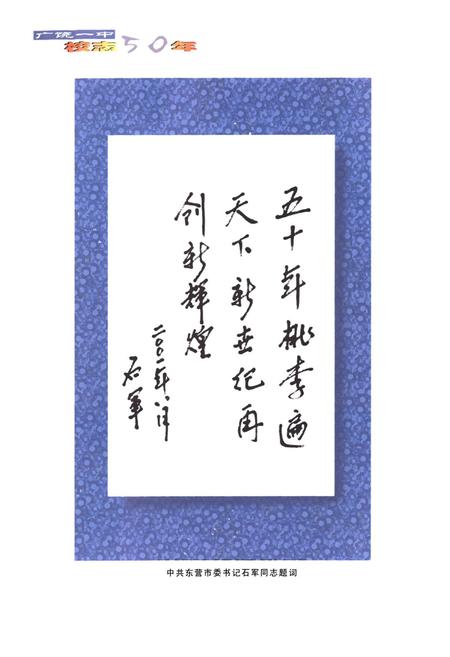 广饶一中
校志50年
五十年桃李遍
天下新世纪再
创新辉煌
二〇〇一年八月
石军
中共东营市委书记石军同志题词